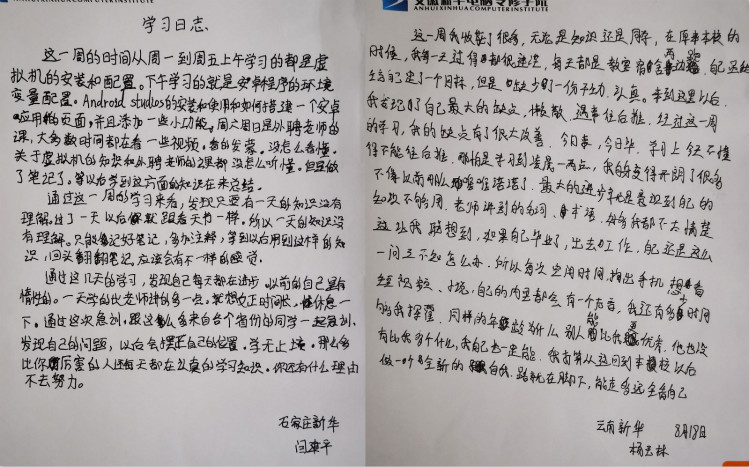 学习日志
这一周的时间从周一到周五上午学习的都是虚
拟机的安装和配置。下午学习的就是安卓程序的环境
变量配置。Android studios的安装和使用和如何搭建一个安卓
应用的页面,并且添加一些小功能。周六周日是外聘老师的
课,大多数时间都在看一些视频,看的发蒙。没怎么看懂。
关于虚拟机的知识和外聘老师的课都没怎么听懂。但是做
了笔记了。等以后学到这方面的知识在来总结。
通过这一周的学习来看,发现只要有一天的知识没有
理解。过了一天以后就跟看天书一样。所以一天的知识没
有理解。只能做记好笔记,多加注释,等到以后用到这样的知
识,回头翻翻笔记,应该会有不一样的感觉。
通过这几天的学习,发现自己每天都在进步。以前的自己是有
惰性的。一天学的比老师讲的多一点。就想放正时间长,休息一
下。通过这次集训,跟这么多来自各个省份的同学一起集训,
发现自己的问题,以后会摆正自己的位置。学无止境。那么多
比你厉害的人还每天都在认真的学习知识。你还有什么理由
不去努力。
石家庄新华
闫
安徽新华电脑专修学院
ANHUIXINHUACOMPUTERINSTITUTE
这一周我收获了很多,无论是知识还是同学,在原来本校的
时候,我每一天过得都很迷茫,每天都是教室宿舍两边跑,自己还
给自己定了一个目标,但是缺少了一份努力、认真。来到这里以后
我发现了自己最大的缺点,懒散、遇事往后推,经过这一周
的学习,我的缺点有了很大改善,今日事,今日毕,学习上今天不懂
得不能往后推,哪怕是学习到凌晨一两点,我的变得开朗了很多
不像以前那么唯唯诺诺了。最大的进步就是意识到自己的
知识不够用,老师讲到的名词、术语,很多我都不太清楚
这让我联想到,如果自己毕业了,出去工作,自己还是这么
一问三不知怎么办,所以每次空闲时间,掏出手机想去看
短视频、小说,自己的内里都会有一个声音,我还有多少时间
的我挥霍,同样的年龄为什么别人能比我更优秀,他也没
有比我多个什么,我自己也一定能,我打算从这回到本校以后
做一个全新的自我,路就在脚下,能走多远全看自己
云南新华 8月18日
杨云林